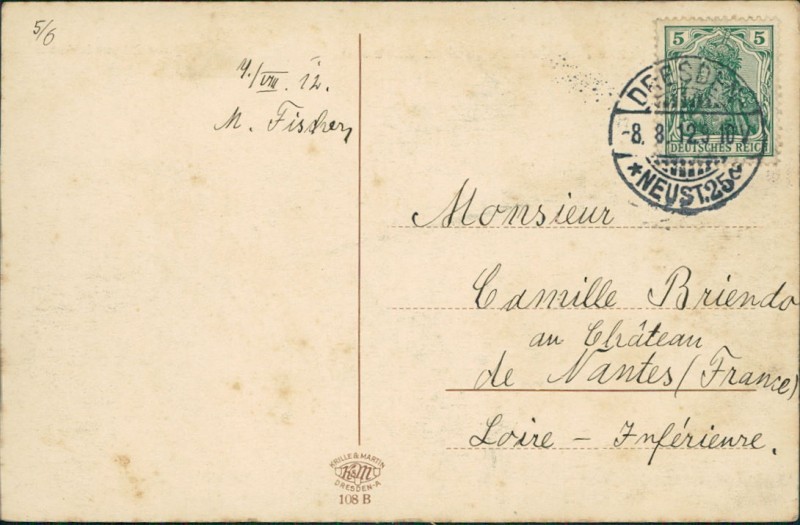 5/6
M. Fischer
5 5
DEUTSCHES REICH
DRESDEN
-8. 8. 12. 9-10 V
*NEUST. 25 c
Monsieur
Camille Briendo
au Château
de Nantes (France)
Loire - Inférieure.
KRILLE & MARTIN
K&M
DRESDEN-A
108 B